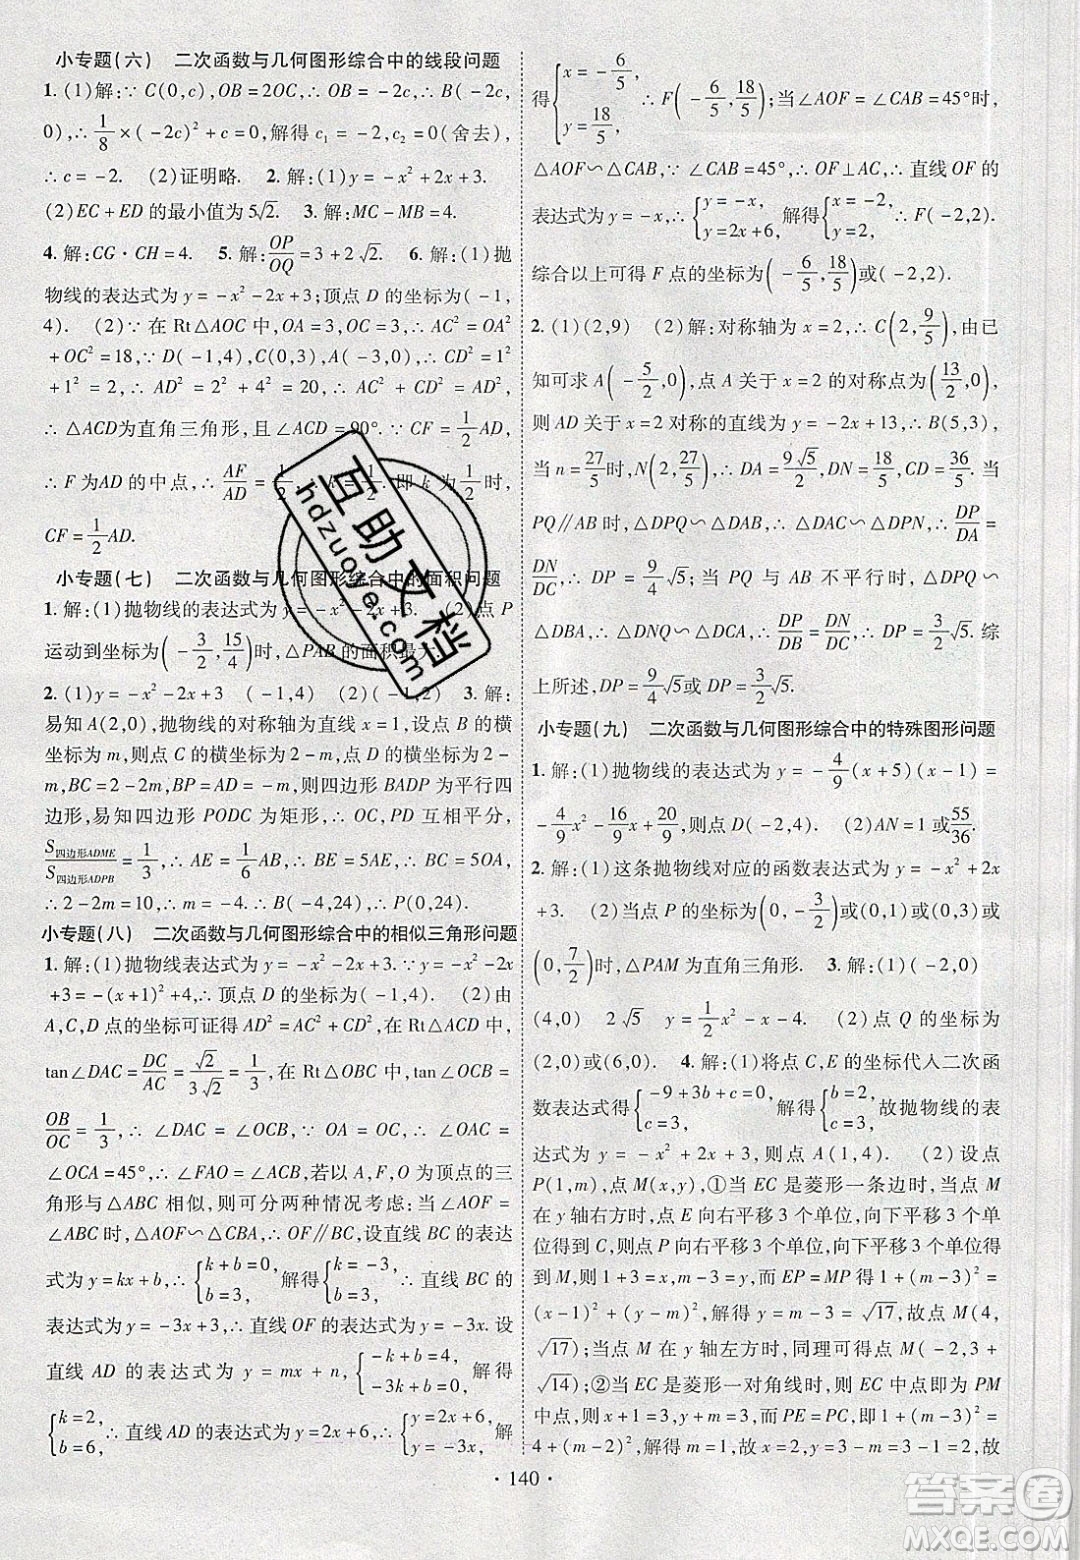 小专题(六)　二次函数与几何图形综合中的线段问题
1. (1)解:∵C(0,c),OB=2OC,∴OB=-2c,∴B(-2c,
0),∴1/8×(-2c)²+c=0,解得c₁=-2,c₂=0(舍去),
∴c=-2.　(2)证明略.　2. 解:(1)y=-x²+2x+3.
(2)EC+ED的最小值为5√2.　3. 解:MC-MB=4.
4. 解:CG·CH=4.　5. 解:OP/OQ=3+2√2.　6. 解:(1)抛
物线的表达式为y=-x²-2x+3;顶点D的坐标为(-1,
4).　(2)∵在Rt△AOC中,OA=3,OC=3,∴AC²=OA²
+OC²=18,∵D(-1,4),C(0,3),A(-3,0),∴CD²=1²
+1²=2,∴AD²=2²+4²=20,∴AC²+CD²=AD²,
∴△ACD为直角三角形,且∠ACD=90°.∵CF=1/2AD,
∴F为AD的中点,∴AF/AD=1/2,∴k=1/2.即k=1/2时,
CF=1/2AD.
小专题(七)　二次函数与几何图形综合中的面积问题
1. 解:(1)抛物线的表达式为y=-x²-2x+3.　(2)点P
运动到坐标为(-3/2,15/4)时,△PAB的面积最大.
2. (1)y=-x²-2x+3　(-1,4)　(2)(-1,2)　3. 解:
易知A(2,0),抛物线的对称轴为直线x=1,设点B的横
坐标为m,则点C的横坐标为2-m,点D的横坐标为2-
m,BC=2-2m,则四边形BADP为平行四
边形,易知四边形PODC为矩形,∴OC,PD互相平分,
S四边形ADME/S四边形ADPB=1/3,∴AE=1/6AB,∴BE=5AE,∴BC=5OA,
∴2-2m=10,∴m=-4.∴B(-4,24),∴P(0,24).
小专题(八)　二次函数与几何图形综合中的相似三角形问题
1. 解:(1)抛物线表达式为y=-x²-2x+3.∵y=-x²-2x
+3=-(x+1)²+4,∴顶点D的坐标为(-1,4).　(2)由
A,C,D点的坐标可证得AD²=AC²+CD²,在Rt△ACD中,
tan∠DAC=DC/AC=√2/3√2=1/3,在Rt△OBC中,tan∠OCB=
OB/OC=1/3,∴∠DAC=∠OCB,∵OA=OC,∴∠OAC=
∠OCA=45°,∴∠FAO=∠ACB,若以A,F,O为顶点的三
角形与△ABC相似,则可分两种情况考虑:当∠AOF=
∠ABC时,∴△AOF∽△CBA,∴OF∥BC,设直线BC的表达
式为y=kx+b,∴{k+b=0,b=3,解得{k=-3,b=3,∴直线BC的
表达式为y=-3x+3,∴直线OF的表达式为y=-3x.设
直线AD的表达式为y=mx+n,∴{-k+b=4,-3k+b=0,解得
{k=2,b=6,∴直线AD的表达式为y=2x+6,∴{y=2x+6,y=-3x,解
得{x=-6/5,y=18/5,∴F(-6/5,18/5);当∠AOF=∠CAB=45°时,
△AOF∽△CAB,∵∠CAB=45°,∴OF⊥AC,∴直线OF的
表达式为y=-x,∴{y=-x,y=2x+6,解得{x=-2,y=2,∴F(-2,2).
综合以上可得F点的坐标为(-6/5,18/5)或(-2,2).
2. (1)(2,9)　(2)解:对称轴为x=2,∴C(2,9/5),由已
知可求A(-5/2,0),点A关于x=2的对称点为(13/2,0),
则AD关于x=2对称的直线为y=-2x+13,∴B(5,3),
当n=27/5时,N(2,27/5),∴DA=9√5/2,DN=18/5,CD=36/5.当
PQ∥AB时,△DPQ∽△DAB,∴△DAC∽△DPN,∴DP/DA=
DN/DC,∴DP=9/4√5;当PQ与AB不平行时,△DPQ∽
△DBA,∴△DNQ∽△DCA,∴DP/DB=DN/DC,∴DP=3/2√5.综
上所述,DP=9/4√5或DP=3/2√5.
小专题(九)　二次函数与几何图形综合中的特殊图形问题
1. 解:(1)抛物线的表达式为y=-4/9(x+5)(x-1)=
-4/9x²-16/9x+20/9,则点D(-2,4).　(2)AN=1或55/36.
2. 解:(1)这条抛物线对应的函数表达式为y=-x²+2x
+3.　(2)点M坐标为(0,-3/2)或(0,1)或(0,3)或
(0,7/2)时,△PAM为直角三角形.　3. 解:(1)(-2,0)
(4,0)　2√5　y=1/2x²-x-4.　(2)点Q的坐标为
(2,0)或(6,0).　4. 解:(1)将点C,E的坐标代入二次函
数表达式得{-9+3b+c=0,c=3,解得{b=2,c=3,故抛物线的表
达式为y=-x²+2x+3,则点A(1,4).　(2)设点
P(1,m),点M(x,y),①当EC是菱形一条边时,当点M
在y轴右方时,点E向右平移3个单位,向下平移3个单
位得到C,则点P向右平移3个单位,向下平移3个单位得
到M,则1+3=x,m-3=y,而EP=MP得1+(m-3)²=
(x-1)²+(y-m)²,解得y=m-3=√17,故点M(4,
√17);当点M在y轴左方时,同理可得点M(-2,3+
√14);②当EC是菱形一对角线时,则EC中点即为PM
中点,则x+1=3,y+m=3,而PE=PC,即1+(m-4)²=
4+(m-2)²,解得m=1,故x=2,y=3-m=3-1=2,故
·140·
互助文档
hdzuoye.com
答案圈
MXQE.COM